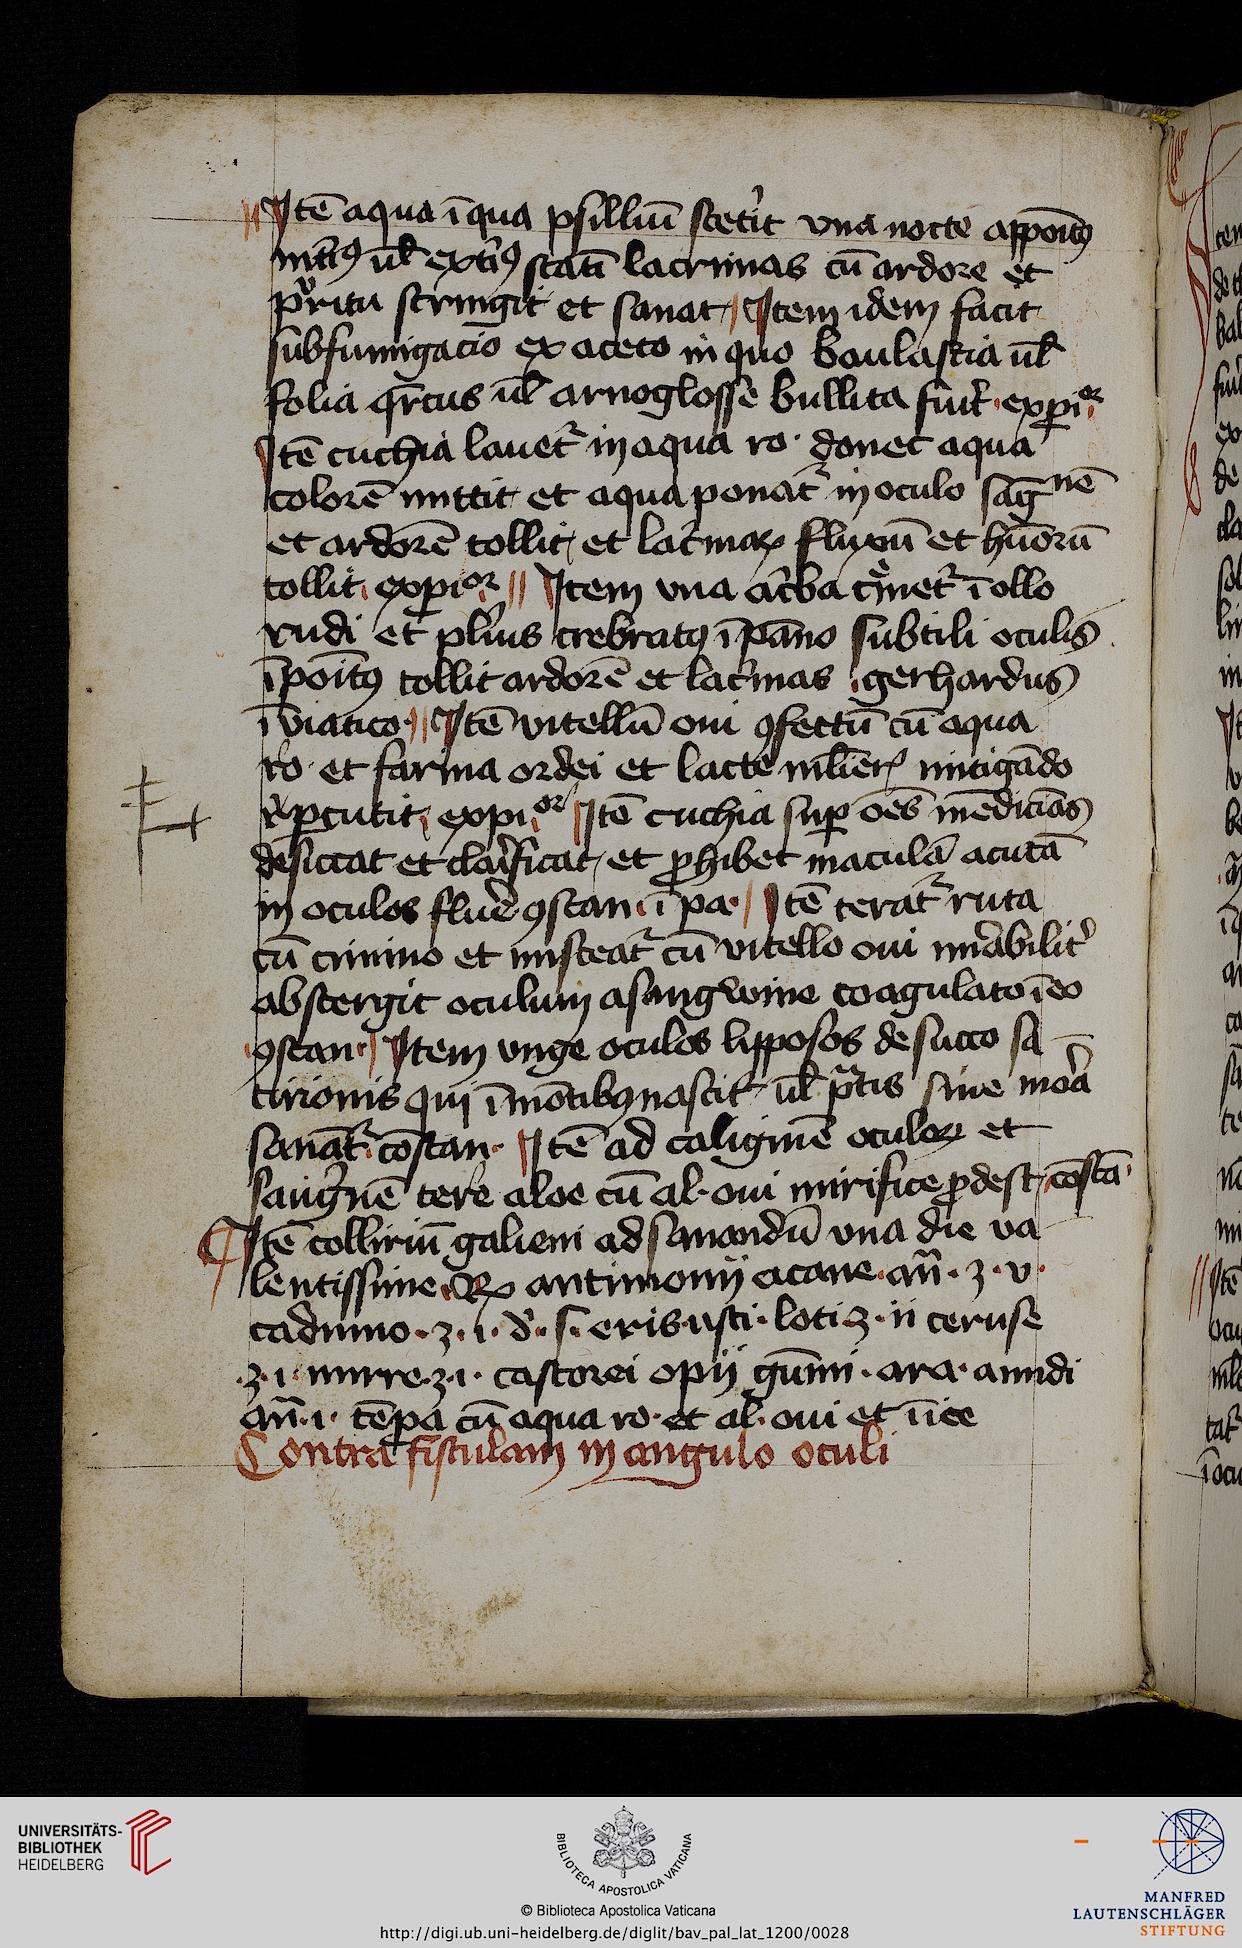 Itē aqua ī qua psilliū stetit una nocte appoītꝰ
int̄iꝰ ul̄ ext̄iꝰ statī lacrimas cū ardore et
pruritu stringit et sanat Item idem facit
subfumigacio ex aceto in quo baulastia ul̄
folia q̄rcus ul̄ arnoglosse bullita fuīt exp̄ior
Itē tuchia lauet in aqua ro· donec aqua
colorē mittit et aqua ponat in oculo sāg nē
et ardorē tollit et lac̄rmaꝝ fluxū et hūorū
tollit exp̄ior Item una ī ollo
rudi et plīus crebratꝰ ī pāno subtili oculis
īpoītꝰ tollit ardorē et lac̄rmas gerhardus
ī viatico Itē vitellū oui ꝯfectū cū aqua
ro· et farina ordei et lacte ml̄ieris mitigādo
rep̄cutit expior Itē tuchia sup̄ oēs mēdicīas
desiccat et clarificat et ꝓhibet maculā acutā
in oculos fluēre ꝯstan· ī pa· Itē terat ruta
cū cimino et misceat cū vitello oui mirabilit
abstergit oculum a sangwine coagulato ī eo
ꝯstan· Item unge oculos lipposos de succo sa
tirionis qui ī mōtibꝰ nascit ul̄ pratis sine mora
sanat cōstan· Itē ad caliginē oculoꝝ et
sanguinē tere aloe cū al· oui mirifice ꝓdest cōstā·
Itē collirium galieni ad sanandū una die va
lentissime ℞ antimonij acane an̄· ʒ· v·
cadmino· ʒ· i· d̄· s· eris usti· loti ʒ· ii ceruse
ʒ· i· mirre ʒ i· castorei opij gūmi· ara· amidi
an̄· i· tēpa cū aqua ro· et al· oui et ūce
Contra fistulam in angulo oculi
UNIVERSITÄTS-
BIBLIOTHEK
HEIDELBERG
BIBLIOTECA APOSTOLICA VATICANA
© Biblioteca Apostolica Vaticana
http://digi.ub.uni-heidelberg.de/diglit/bav_pal_lat_1200/0028
MANFRED
LAUTENSCHLÄGER
STIFTUNG